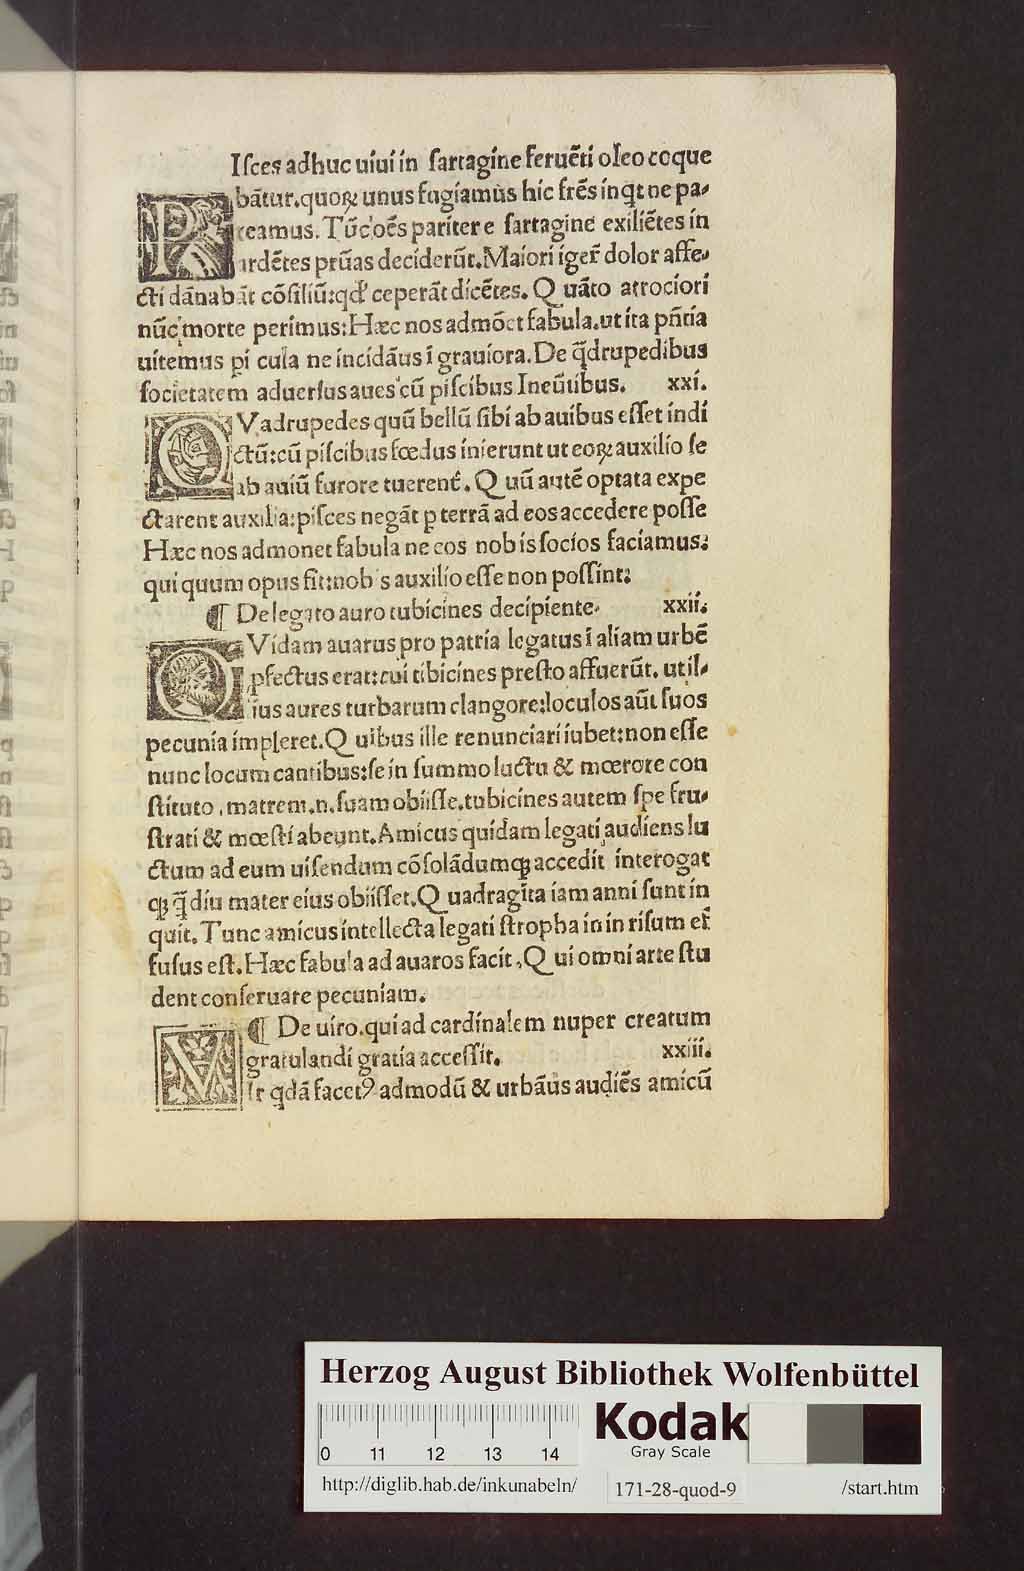 PIſces adhuc uiui in ſartagine feruēti oleo coque
bātur. quoꝝ unus fugiamus hic frēs inqt ne pa⸗
reamus. Tūc oēs pariter e ſartagine exiliētes in
ardētes prūas deciderūt. Maiori igeͬ dolor affe⸗
cti dānabāt cōſiliū: qd ceperāt dicētes. Quāto atrociori
nūc morte perimus: Hæc nos admōet fabula. ut ita pn̄tia
uitemus pi cula ne incidāus ī grauiora. De q̄drupedibus
ſocietatem aduerſus aues cū piſcibus Ineūtibus. xxi.
QVadrupedes quū bellū ſibi ab auibus eſſet indi
ctū: cū piſcibus fœdus inierunt ut eoꝝ auxilio ſe
ab auiū furore tuerent. Quū autē optata expe
ctarent auxilia: piſces negāt p terrā ad eos accedere poſſe
Hæc nos admonet fabula ne eos nobis ſocios faciamus:
qui quum opus ſit: nob s auxilio eſſe non poſſint:
¶ De legato auro tubicines decipiente. xxii.
QVidam auarus pro patria legatus ī aliam urbē
pfectus erat: cui tibicines preſto affuerūt. util⸗
ius aures turbarum clangore: loculos aūt ſuos
pecunia impleret. Quibus ille renunciari iubet: non eſſe
nunc locum cantibus: ſe in ſummo luctu & mœrore con
ſtituto. matrem. n. ſuam obiiſſe. tubicines autem ſpe fru⸗
ſtrati & mœſti abeunt. Amicus quidam legati audiens lu
ctum ad eum uiſendum cōſolādumqꝫ accedit interogat
qꝫ q̄diu mater eius obiiſſet. Quadragīta iam anni ſunt in
quit. Tunc amicus intellecta legati ſtropha in in riſum ef
fuſus eſt. Hæc fabula ad auaros facit. Qui omni arte ſtu
dent conſeruare pecuniam.
¶ De uiro. qui ad cardinalem nuper creatum
gratulandi gratia acceſſit. xxiii.
VIr qdā facetꝰ admodū & urbāus audiēs amicū
Herzog August Bibliothek Wolfenbüttel
0 11 12 13 14
Kodak
Gray Scale
http://diglib.hab.de/inkunabeln/ 171-28-quod-9 /start.htm